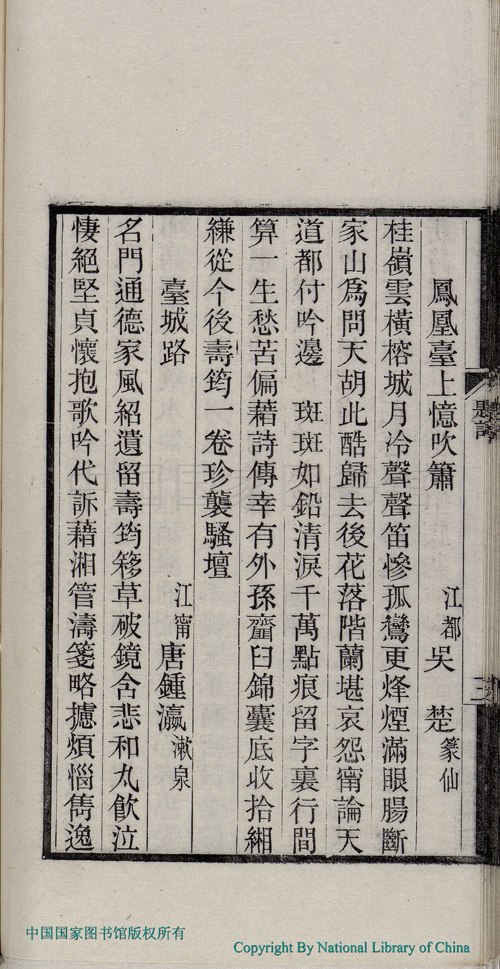 鳳凰臺上憶吹簫 江都 吳楚 篆仙
桂嶺雲橫榕城月冷聲聲笛慘孤鸞更烽煙滿眼腸斷
家山爲問天胡此酷歸去後花落階蘭堪哀怨甯論天
道都付吟邊 斑斑如鉛清淚千萬點痕留字裏行間
算一生愁苦偏藉詩傳幸有外孫齏臼錦囊底收拾緗
縑從今後壽筠一卷珍襲騷壇
臺城路 江甯 唐鍾瀛 漱泉
名門通德家風紹遺留壽筠簃草破鏡含悲和丸飮泣
悽絕堅貞懷抱歌吟代訴藉湘管濤箋略攄煩惱雋逸
題詞
中国国家图书馆版权所有
Copyright By National Library of China